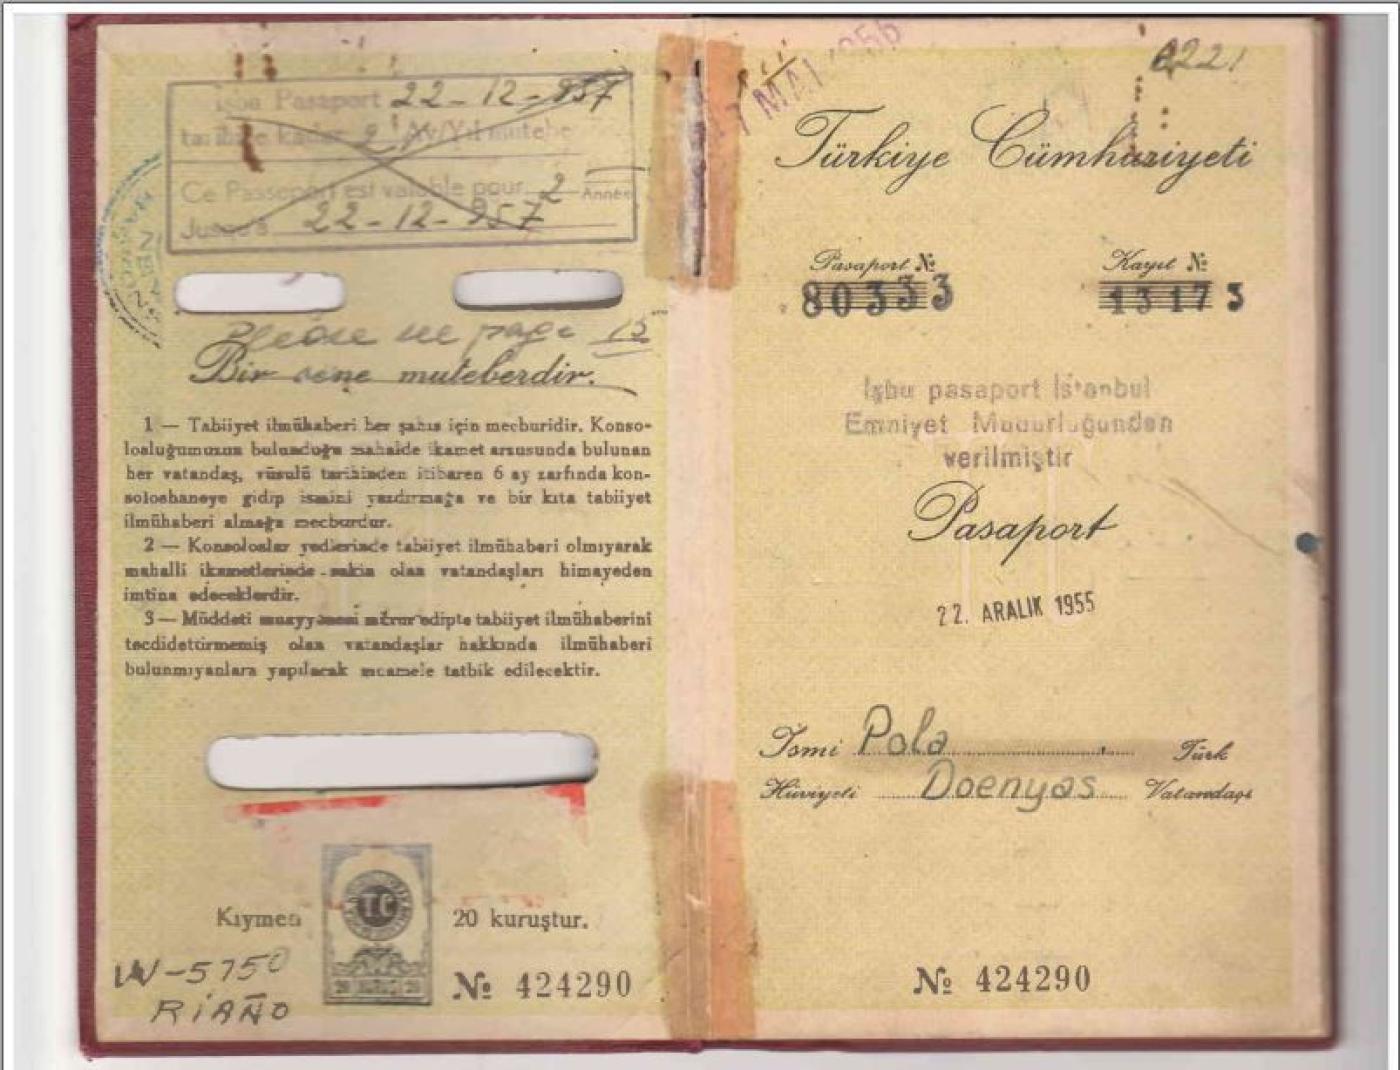 İşbu Pasaport 22-12-957
tarihine kadar 2 Ay/Yıl mutebe
Ce Passeport est valable pour 2 Année
Jusqu'à 22-12-957
Please see page 15
Bir sene muteberdir.
1 — Tabiiyet ilmühaberi her şahıs için mecburidir. Konso-
losluğumuzun bulunduğu mahalde ikamet arzusunda bulunan
her vatandaş, vüsulü tarihinden itibaren 6 ay zarfında kon-
soloshaneye gidip ismini yazdırmağa ve bir kıta tabiiyet
ilmühaberi almağa mecburdur.
2 — Konsoloslar yedlerinde tabiiyet ilmühaberi olmıyarak
mahalli ikametlerinde sakin olan vatandaşları himayeden
imtina edeceklerdir.
3 — Müddeti muayyenesi mürur edipte tabiiyet ilmühaberini
tecdidettirmemiş olan vatandaşlar hakkında ilmühaberi
bulunmıyanlara yapılacak muamele tatbik edilecektir.
Kıymeti TC 20 kuruştur.
W-5750
RIAÑO
№ 424290
7 MAI 1956
Türkiye Cümhuriyeti
Pasaport № Kayıt №
80333 13173
İşbu pasaport İstanbul
Emniyet Müdürlüğünden
verilmiştir
Pasaport
22. ARALIK 1955
İsmi Pola Türk
Hüviyeti Doenyas Vatandaşı
№ 424290